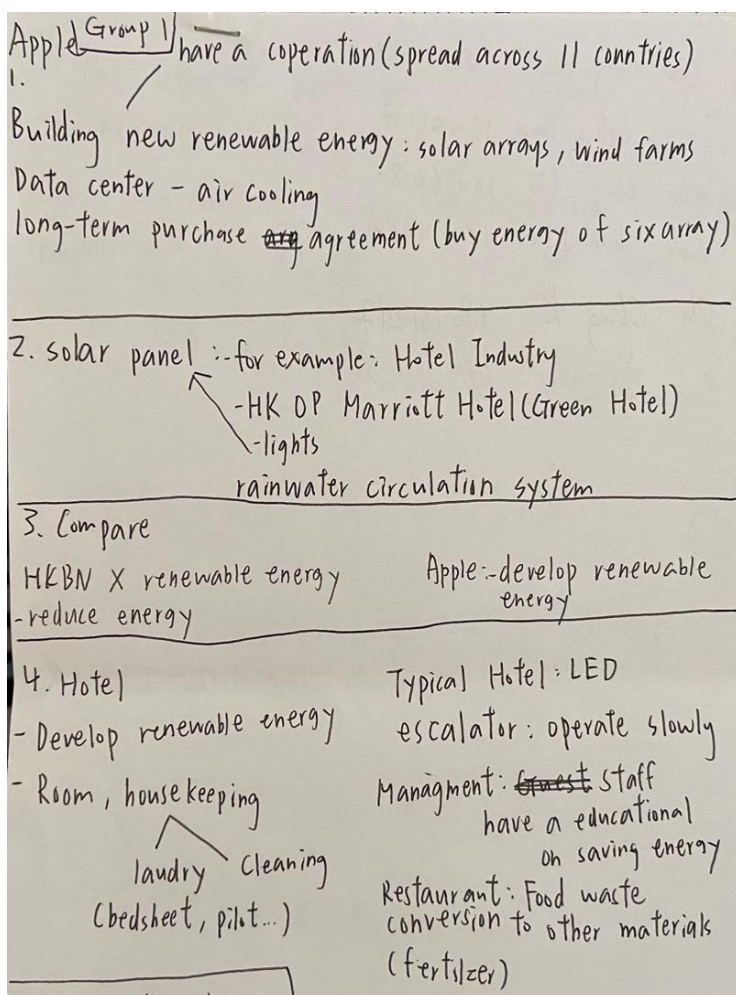 Apple Group 1 have a coperation (spread across 11 conntries)
1.
Building new renewable energy: solar arrays, wind farms
Data center - air cooling
long-term purchase agreement (buy energy of six array)
2. solar panel :-for example: Hotel Industry
-HK OP Marriott Hotel (Green Hotel)
-lights
rainwater circulation system
3. Compare
HKBN X renewable energy
-reduce energy
Apple:-develop renewable
energy
4. Hotel
- Develop renewable energy
- Room, housekeeping
laudry cleaning
(bedsheet, pilot...)
Typical Hotel: LED
escalator: operate slowly
Managment: Guest staff
have a educational
on saving energy
Restaurant: Food waste
conversion to other materials
(fertilzer)